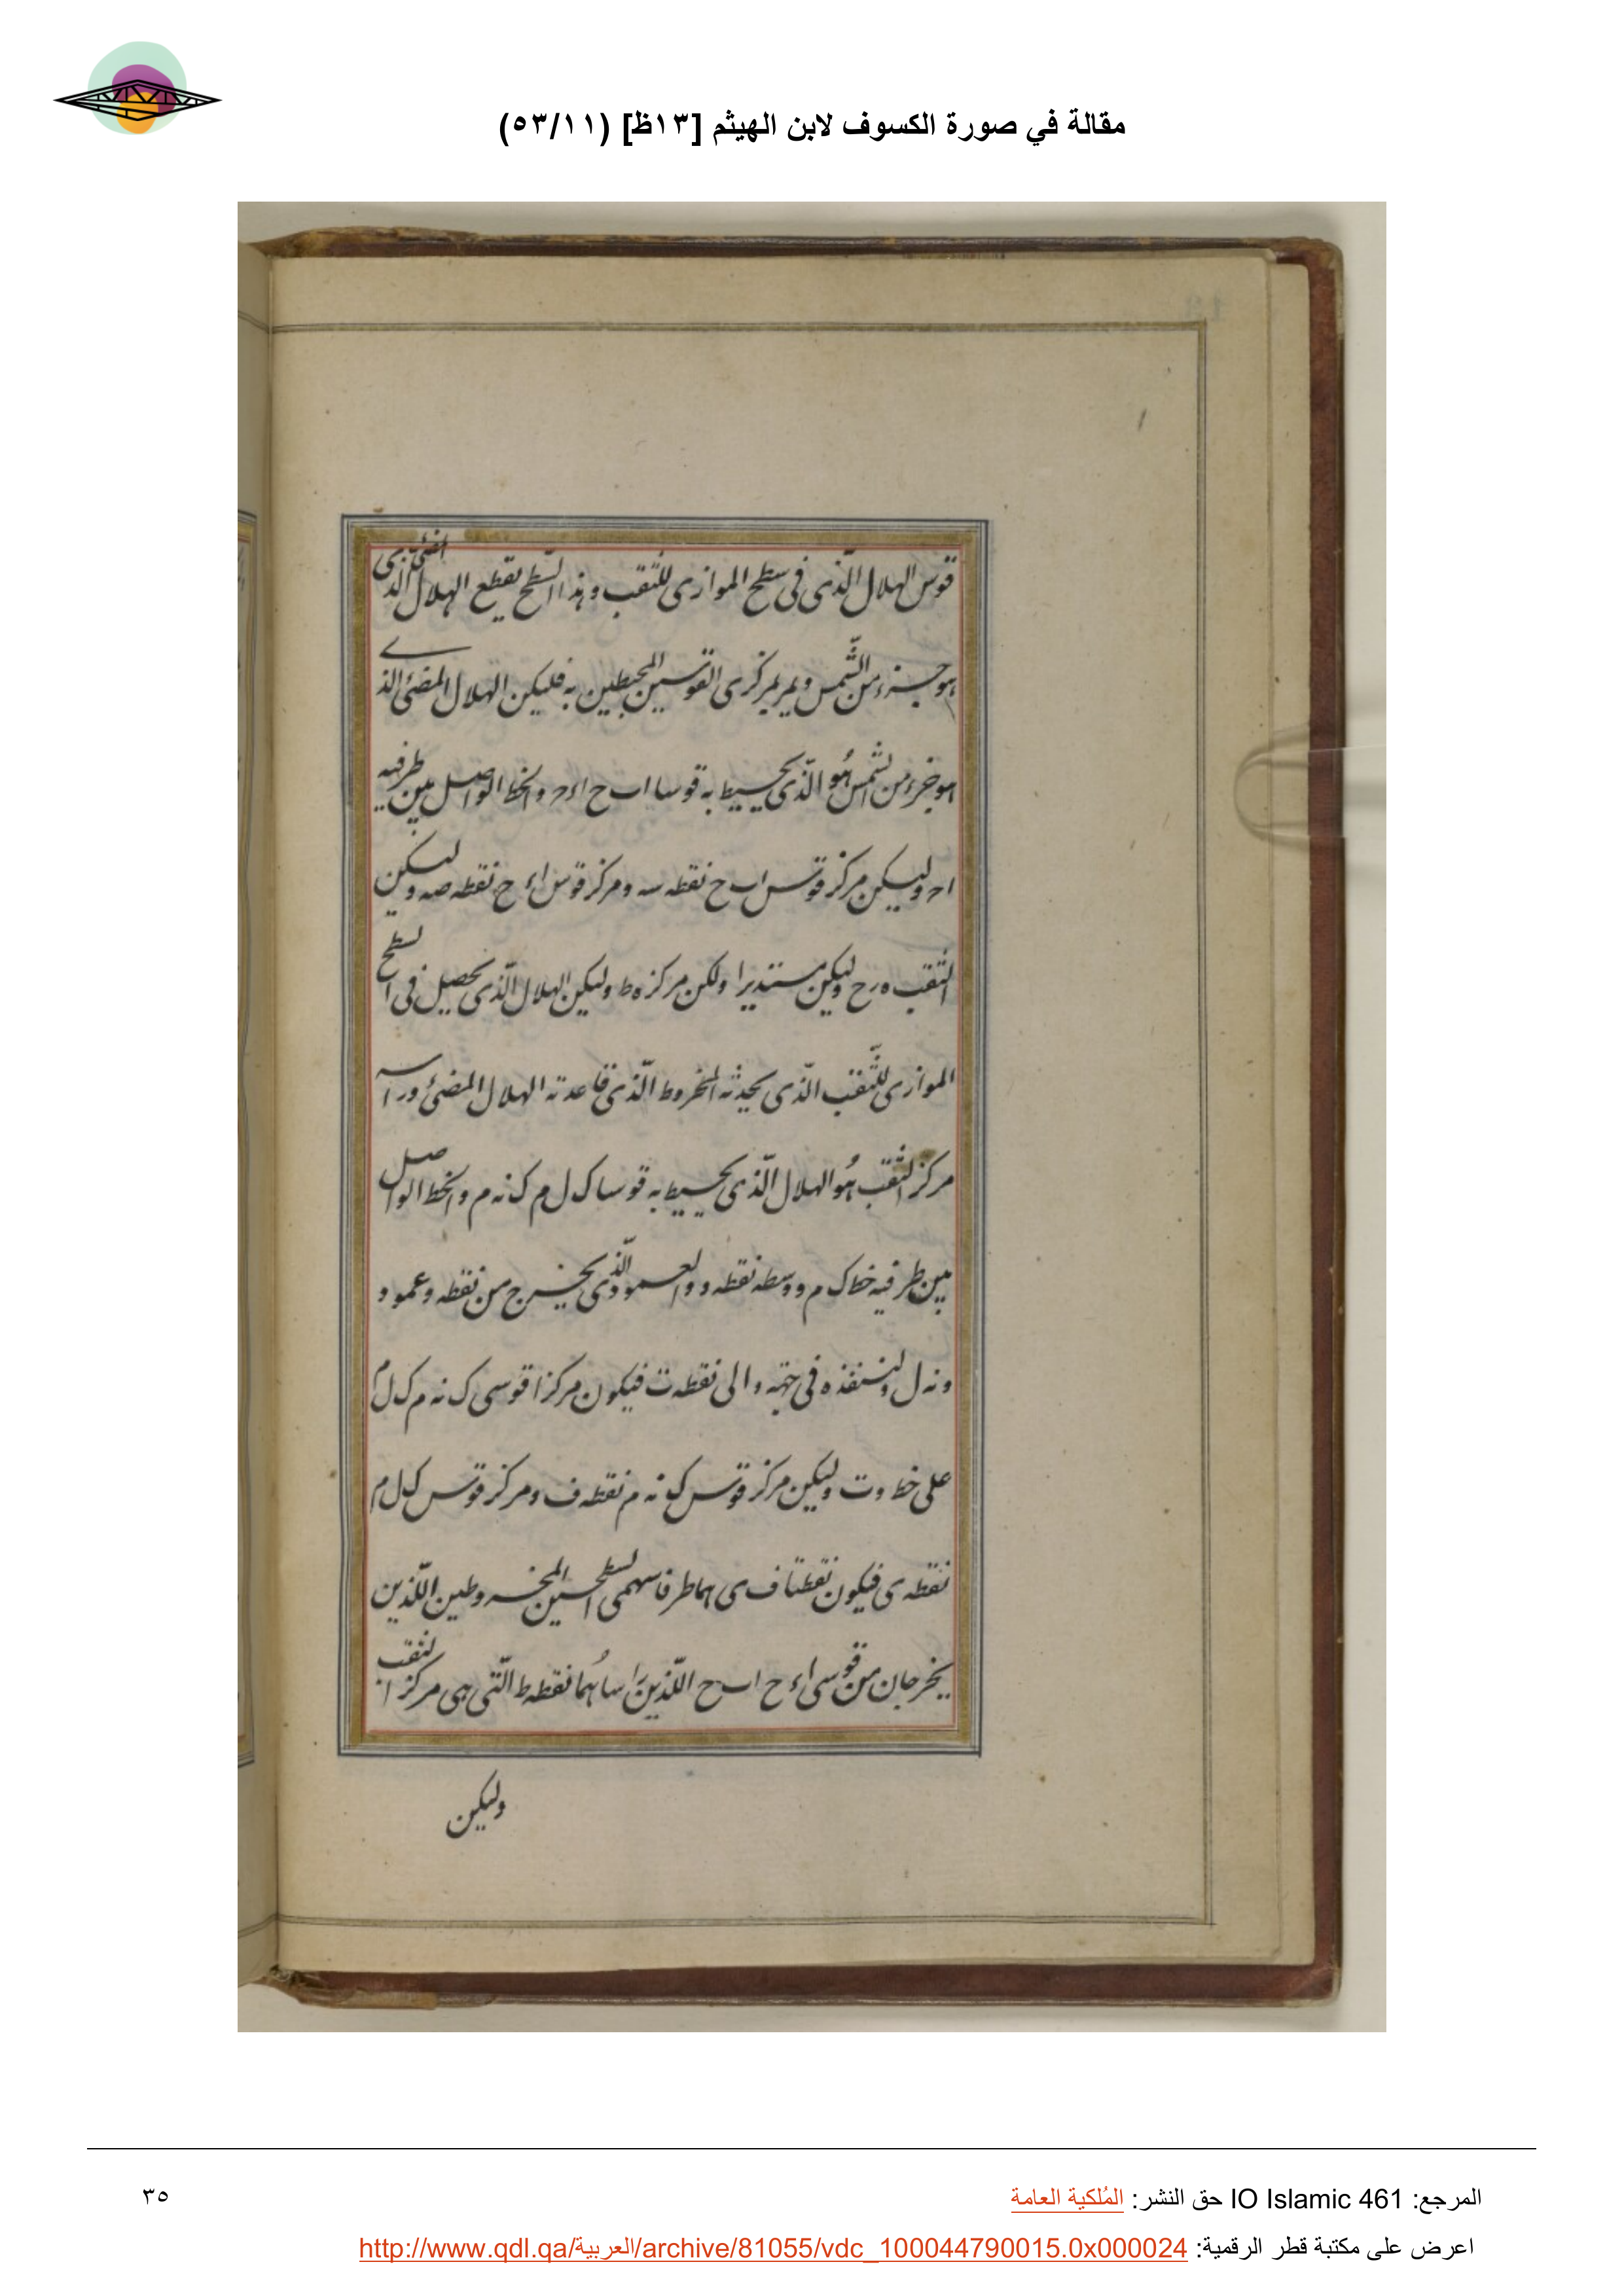 مقالة في صورة الكسوف لابن الهيثم [١٣ظ] (٥٣/١١)
قوس الهلال الّذى فى سطح الموازى للثقب وهذا السّطح يقطع الهلال المضئ الذى
هو جزء من الشّمس ويمر بمركزى القوسين المحيطين به فليكن الهلال المضئ الذى
هو جزء من الشمس هُو الّذى يحيط به قوسا اب ح اء ح والخط الواصل بين طرفيه
اح وليكن مركز قوس اب ح نقطه سه ومركز قوس اء ح نقطه صه وليكن
الثّقب ه ر ح وليكن مستديرا ولكن مركزه ط وليكن الهلال الّذى يحصل فى السطح
الموازى للثّقب الّذى يحدثه المخروط الّذى قاعدته الهلال المضئ وراسه
مركز الثّقب هُو الهلال الّذى يحيط به قوسا ك ل م ك نه م والخط الواصل
بين طرفيه خط ك م ووسطه نقطه و والعمود الّذى يخرج من نقطه و عمود
و نه ل ولننفذه فى جهة و الى نقطه ت فيكون مركزا قوسى ك نه م ك ل م
على خط وت وليكن مركز قوس ك نه م نقطه ف ومركز قوس ك ل م
نقطه ى فيكون نقطتا ف ى هما طرفا سهمى السطحين المخروطين اللّذين
يخرجان من قوسى اء ح اب ح اللّذين راساهُما نقطه ط الّتى هى مركز الثقب
وليكن
المرجع: IO Islamic 461 حق النشر: المُلكية العامة
٣٥
اعرض على مكتبة قطر الرقمية: http://www.qdl.qa/العربية/archive/81055/vdc_100044790015.0x000024